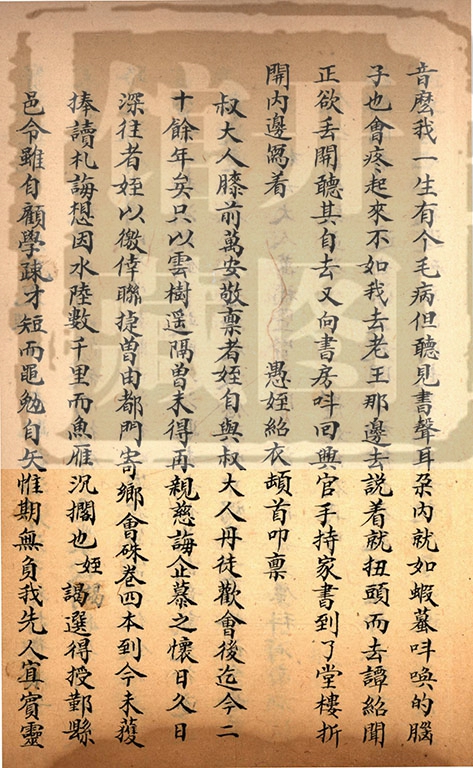 音麽我一生有个毛病但聽見書聲耳朶内就如蝦蟇呌喚的腦
子也會疼起來不如我去老王那邊去説着就扭頭而去譚紹聞
正欲丢開聽其自去又向書房呌回興官手持家書到了堂樓折
開内邊寫着　愚姪紹衣頓首叩禀
叔大人膝前萬安敬禀者姪自與叔大人丹徒歡會後迄今二
十餘年矣只以雲樹遥隔曽未得再親慈誨企慕之懷日久日
深往者姪以徼倖聯捷曽由都門寄鄉會硃卷四本到今未獲
捧讀札誨想因水陸數千里而魚雁沉擱也姪謁選得授鄞縣
邑令雖自顧學疎才短而黽勉自矢惟期無負我先人宜賓靈
圖
館藏